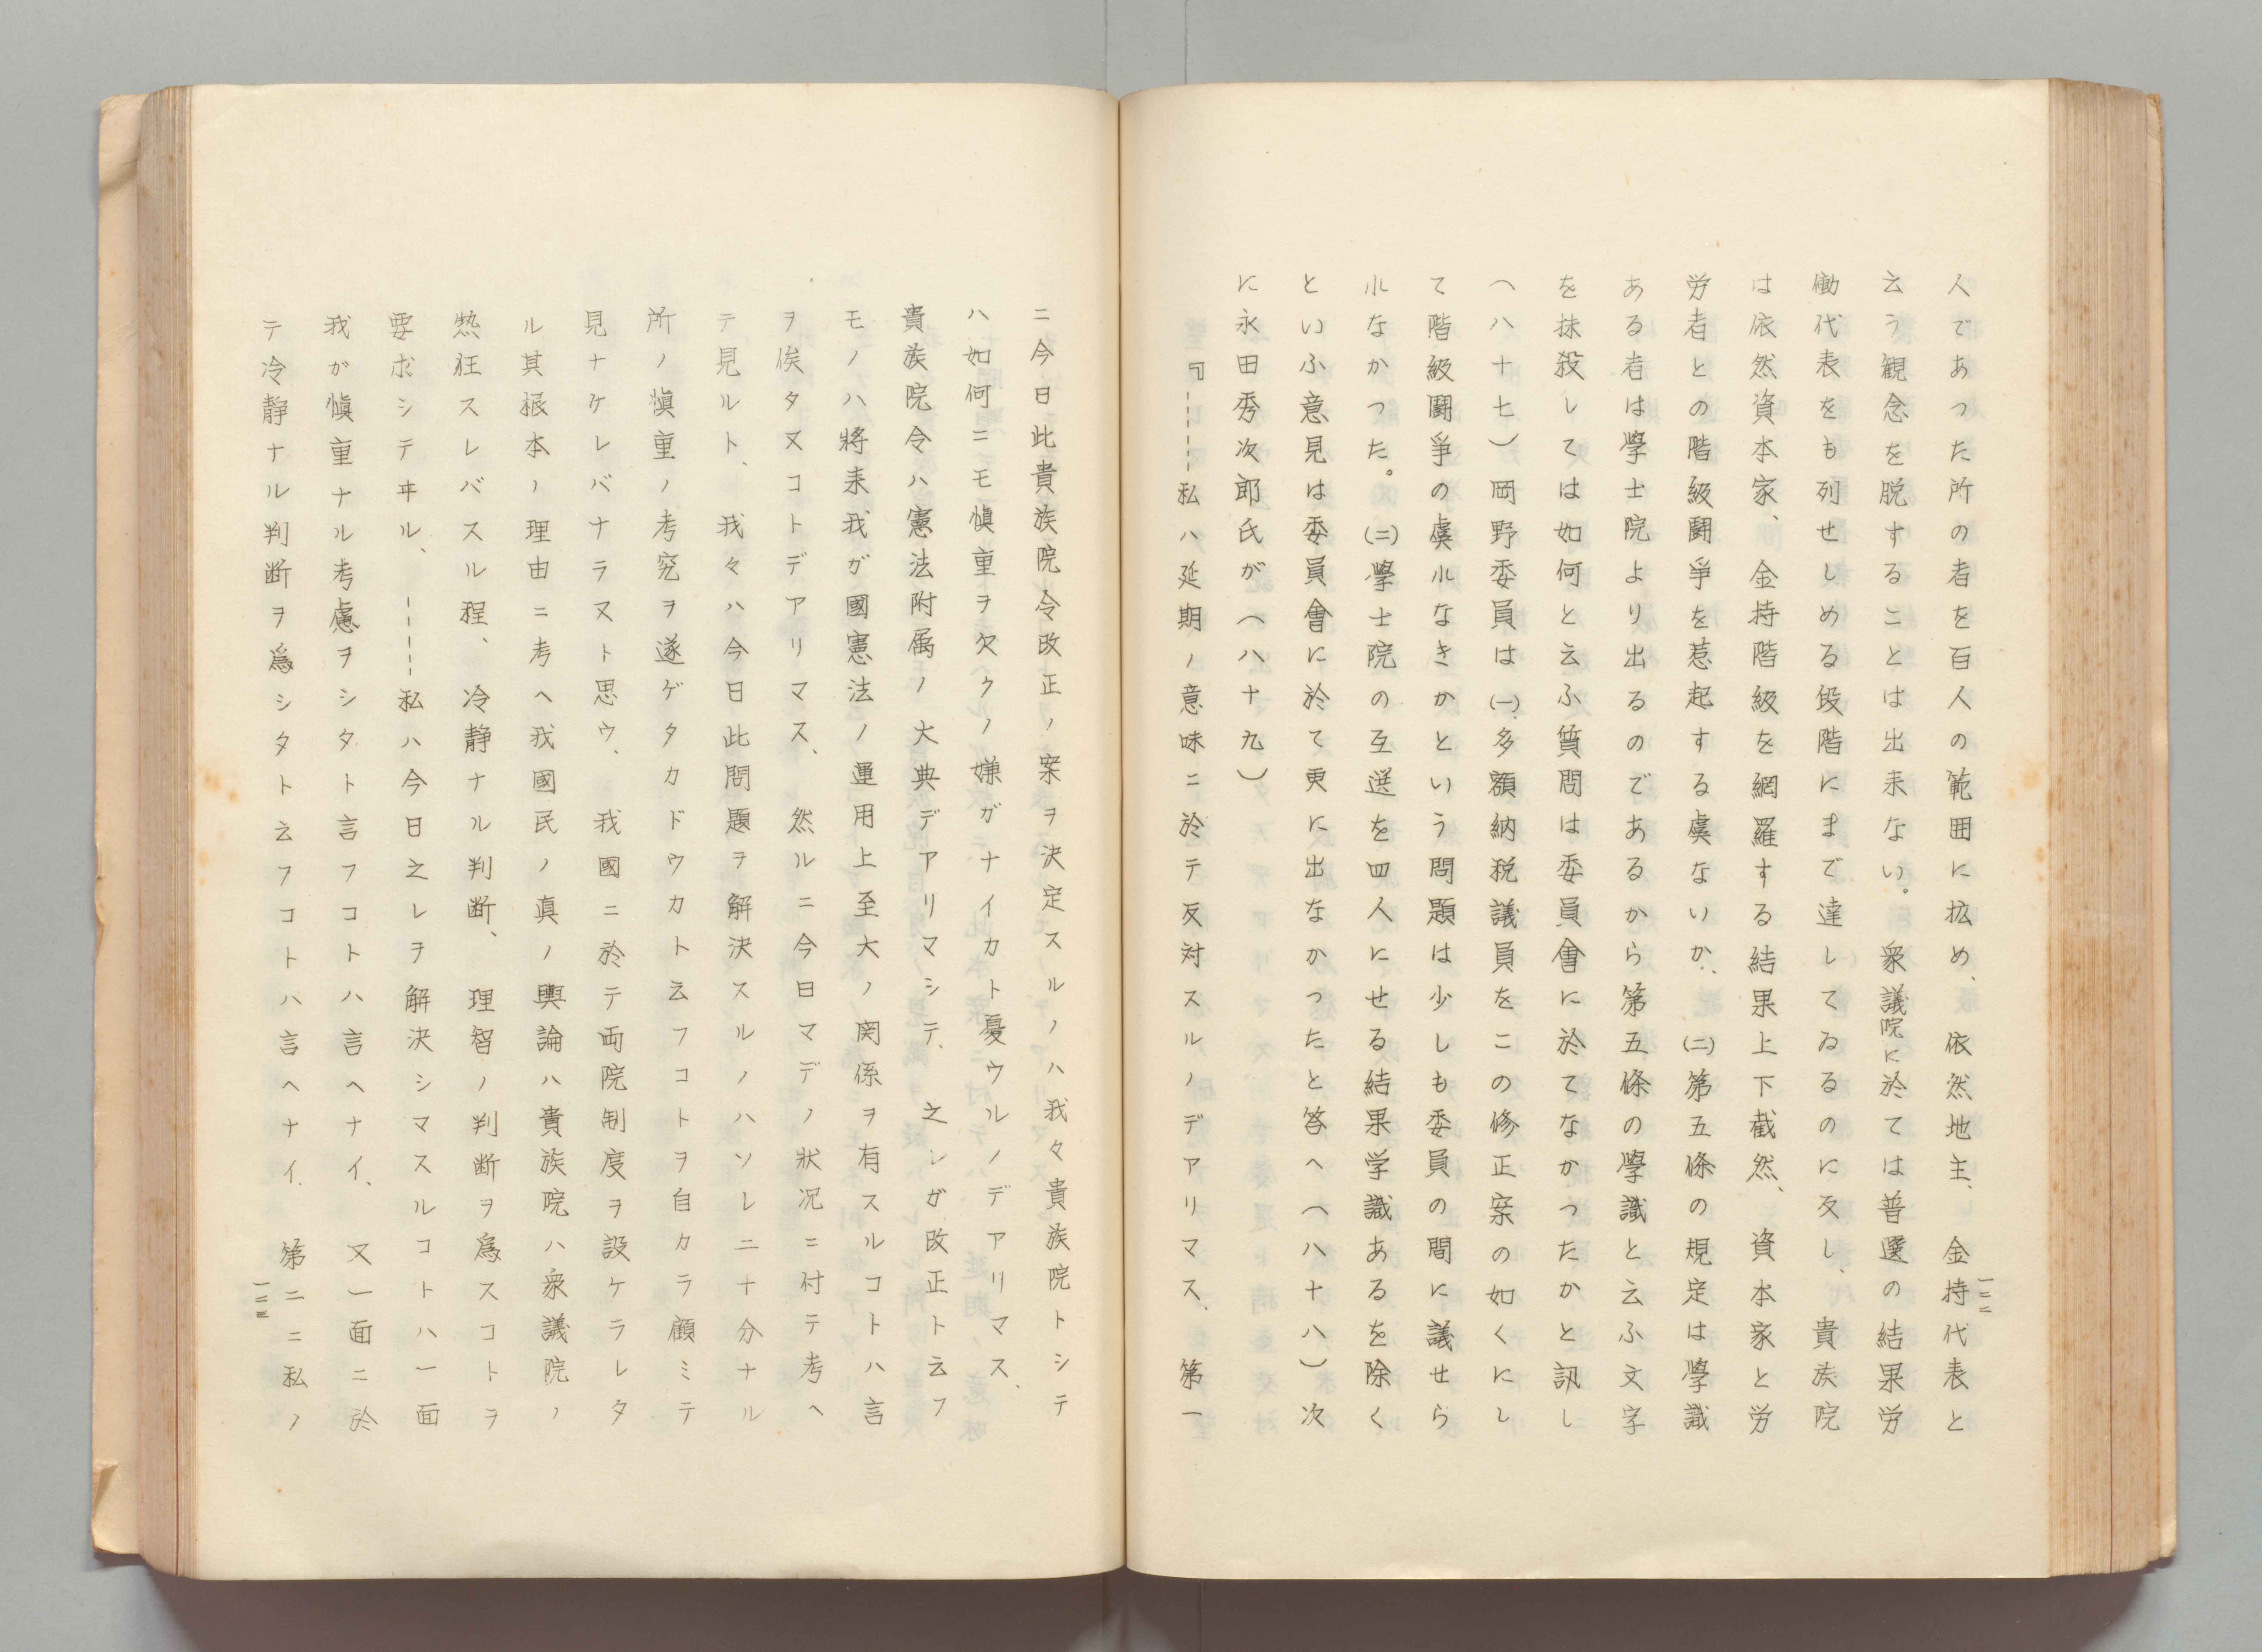 人であった所の者を百人の範囲に拡め、依然地主、金持代表と
云う観念を脱することは出来ない。衆議院に於ては普選の結果労
働代表をも列せしめる段階にまで達してゐるのに反し、貴族院
は依然資本家、金持階級を網羅する結果上下截然、資本家と労
労者との階級闘爭を惹起する虞ないか、㈡第五條の規定は學識
ある者は學士院より出るのであるから第五條の學識と云ふ文字
を抹殺しては如何と云ふ質問は委員會に於てなかったかと訊し
（八十七）岡野委員は㈠、多額納税議員をこの修正案の如くにし
て階級闘爭の虞れなきかという問題は少しも委員の間に議せら
れなかった。㈡學士院の互選を四人にせる結果学識あるを除く
といふ意見は委員會に於て更に出なかったと答へ（八十八）次
に永田秀次郎氏が（八十九）
『-----私ハ延期ノ意味ニ於テ反対スルノデアリマス、第一
一二二
ニ今日此貴族院令改正ノ案ヲ決定スルノハ我々貴族院トシテ
ハ如何ニモ愼重ヲ欠クノ嫌ガナイカト憂ウルノデアリマス、
貴族院令ハ憲法附属ノ大典デアリマシテ、之レガ改正ト云フ
モノハ將来我ガ國憲法ノ運用上至大ノ関係ヲ有スルコトハ言
ヲ俟タヌコトデアリマス、然ルニ今日マデノ狀況ニ付テ考ヘ
テ見ルト、我々ハ今日此問題ヲ解決スルノハソレニ十分ナル
所ノ愼重ノ考究ヲ遂ゲタカドウカト云フコトヲ自カラ顧ミテ
見ナケレバナラヌト思ウ、我國ニ於テ両院制度ヲ設ケラレタ
ル其根本ノ理由ニ考ヘ我國民ノ真ノ輿論ハ貴族院ハ衆議院ノ
熱狂スレバスル程、冷静ナル判断、理智ノ判断ヲ爲スコトヲ
要求シテヰル、-----私ハ今日之レヲ解決シマスルコトハ一面
我が愼重ナル考慮ヲシタト言フコトハ言ヘナイ、又一面ニ於
テ冷静ナル判断ヲ爲シタト云フコトハ言ヘナイ、第二ニ私ノ
一二三